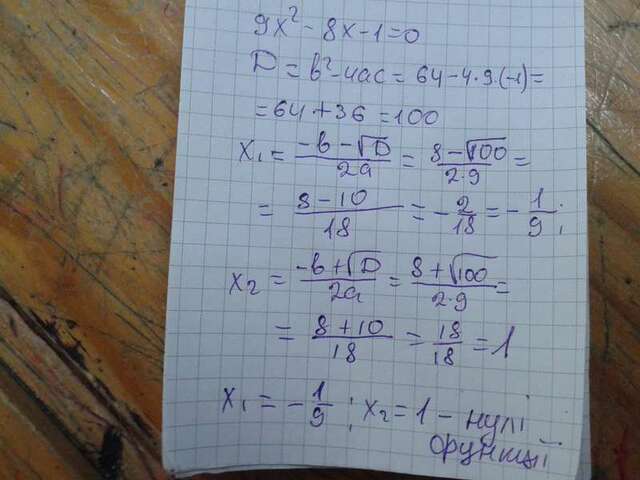 9x² - 8x - 1 = 0
D = b² - 4ac = 64 - 4·9·(-1) =
= 64 + 36 = 100
x₁ = (-b - √D)/(2a) = (8 - √100)/(2·9) =
= (8 - 10)/18 = -2/18 = -1/9;
x₂ = (-b + √D)/(2a) = (8 + √100)/(2·9) =
= (8 + 10)/18 = 18/18 = 1
x₁ = -1/9; x₂ = 1 - нулі
функції